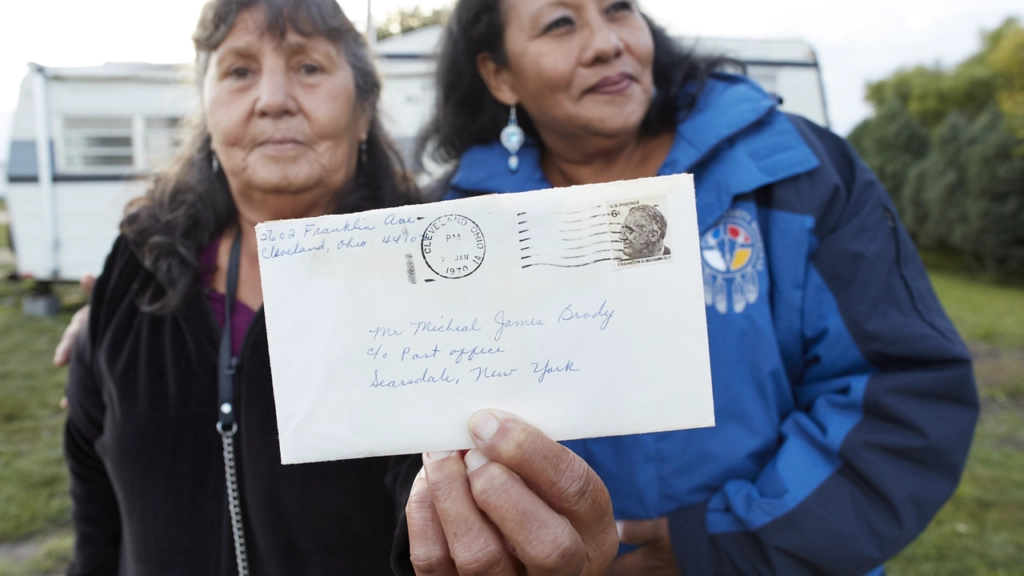 2602 Franklin Ave
Cleveland, Ohio. 4410
CLEVELAND, OHIO
PM
JAN
1970
U.S. POSTAGE
6¢
FRANKLIN D. ROOSEVELT
Mr Micheal James Brody
c/o Post office
Scarsdale, New York